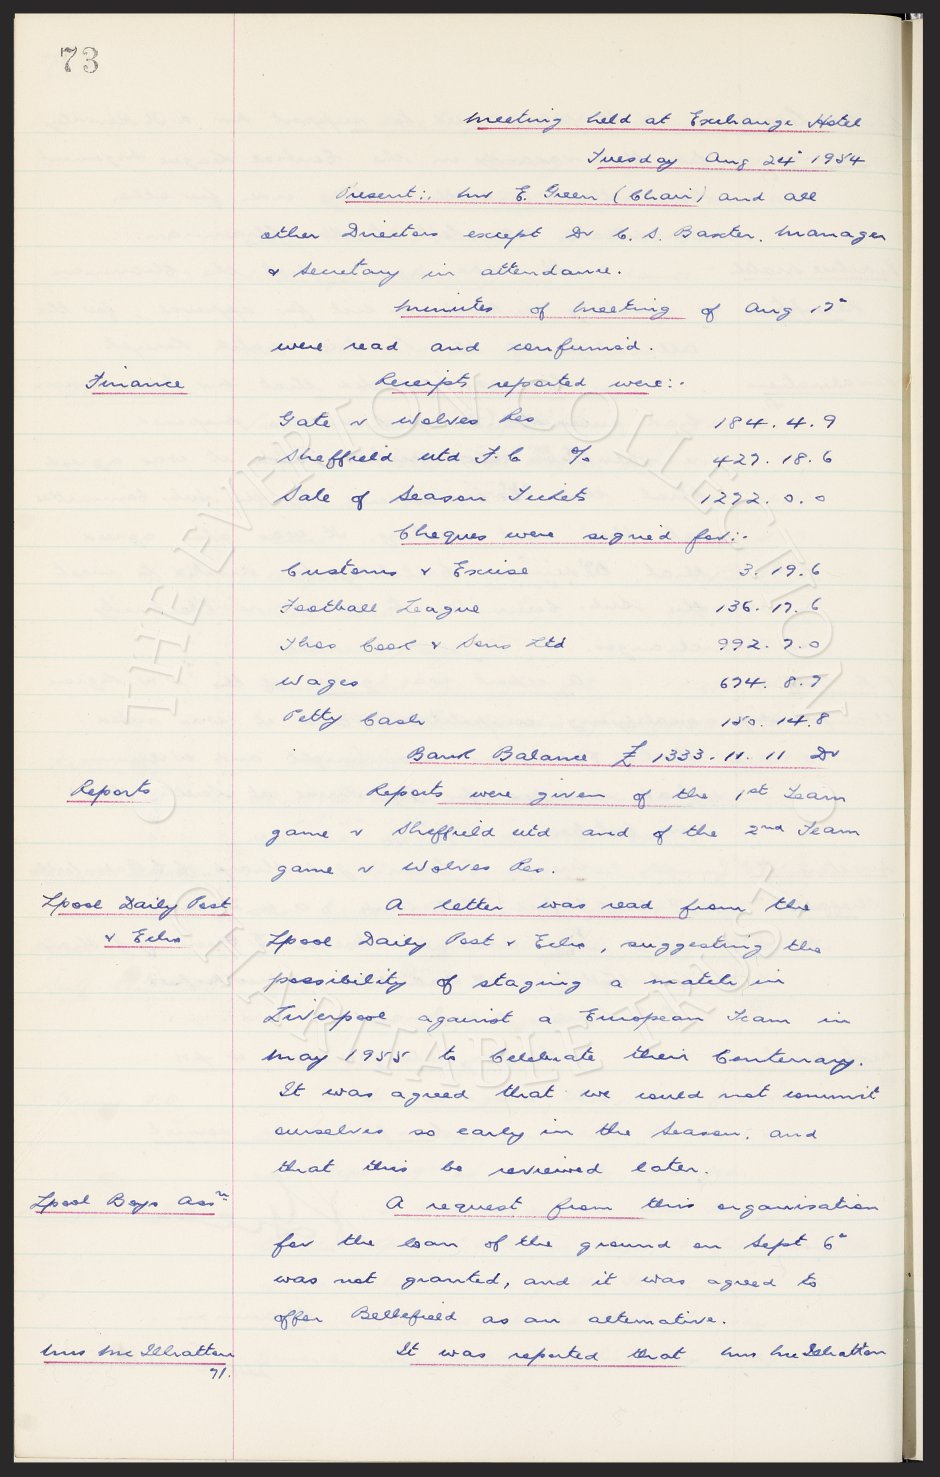 73
Meeting held at Exchange Hotel
Tuesday Aug 24" 1954
Present:. Mr E. Green (Chair) and all
other Directors except Dr C. S. Baxter. Manager
& Secretary in attendance.
Minutes of Meeting of Aug 17"
were read and confirmed.
Finance
Receipts reported were:.
Gate v Wolves Res 184. 4. 9
Sheffield Utd F.C % 427. 18. 6
Sale of Season Tickets 1272. 0. 0
Cheques were signed for:.
Customs & Excise 3. 19. 6
Football League 136. 17. 6
Thos Cook & Sons Ltd 992. 7. 0
Wages 674. 8. 7
Petty Cash 150. 14. 8
Bank Balance £ 1333. 11. 11 Dr
Reports
Reports were given of the 1st Team
game v Sheffield Utd and of the 2nd Team
game v Wolves Res.
Lpool Daily Post
& Echo
A letter was read from the
Lpool Daily Post & Echo, suggesting the
possibility of staging a match in
Liverpool against a European Team in
May 1955 to Celebrate their Centenary.
It was agreed that we could not commit
ourselves so early in the Season, and
that this be reviewed later.
Lpool Boys Assn
A request from this organisation
for the loan of the ground on Sept 6"
was not granted, and it was agreed to
offer Bellefield as an alternative.
Mrs McIlhatton
71.
It was reported that Mrs McIlhatton
THE EVERTON COLLECTION
CHARITABLE TRUST